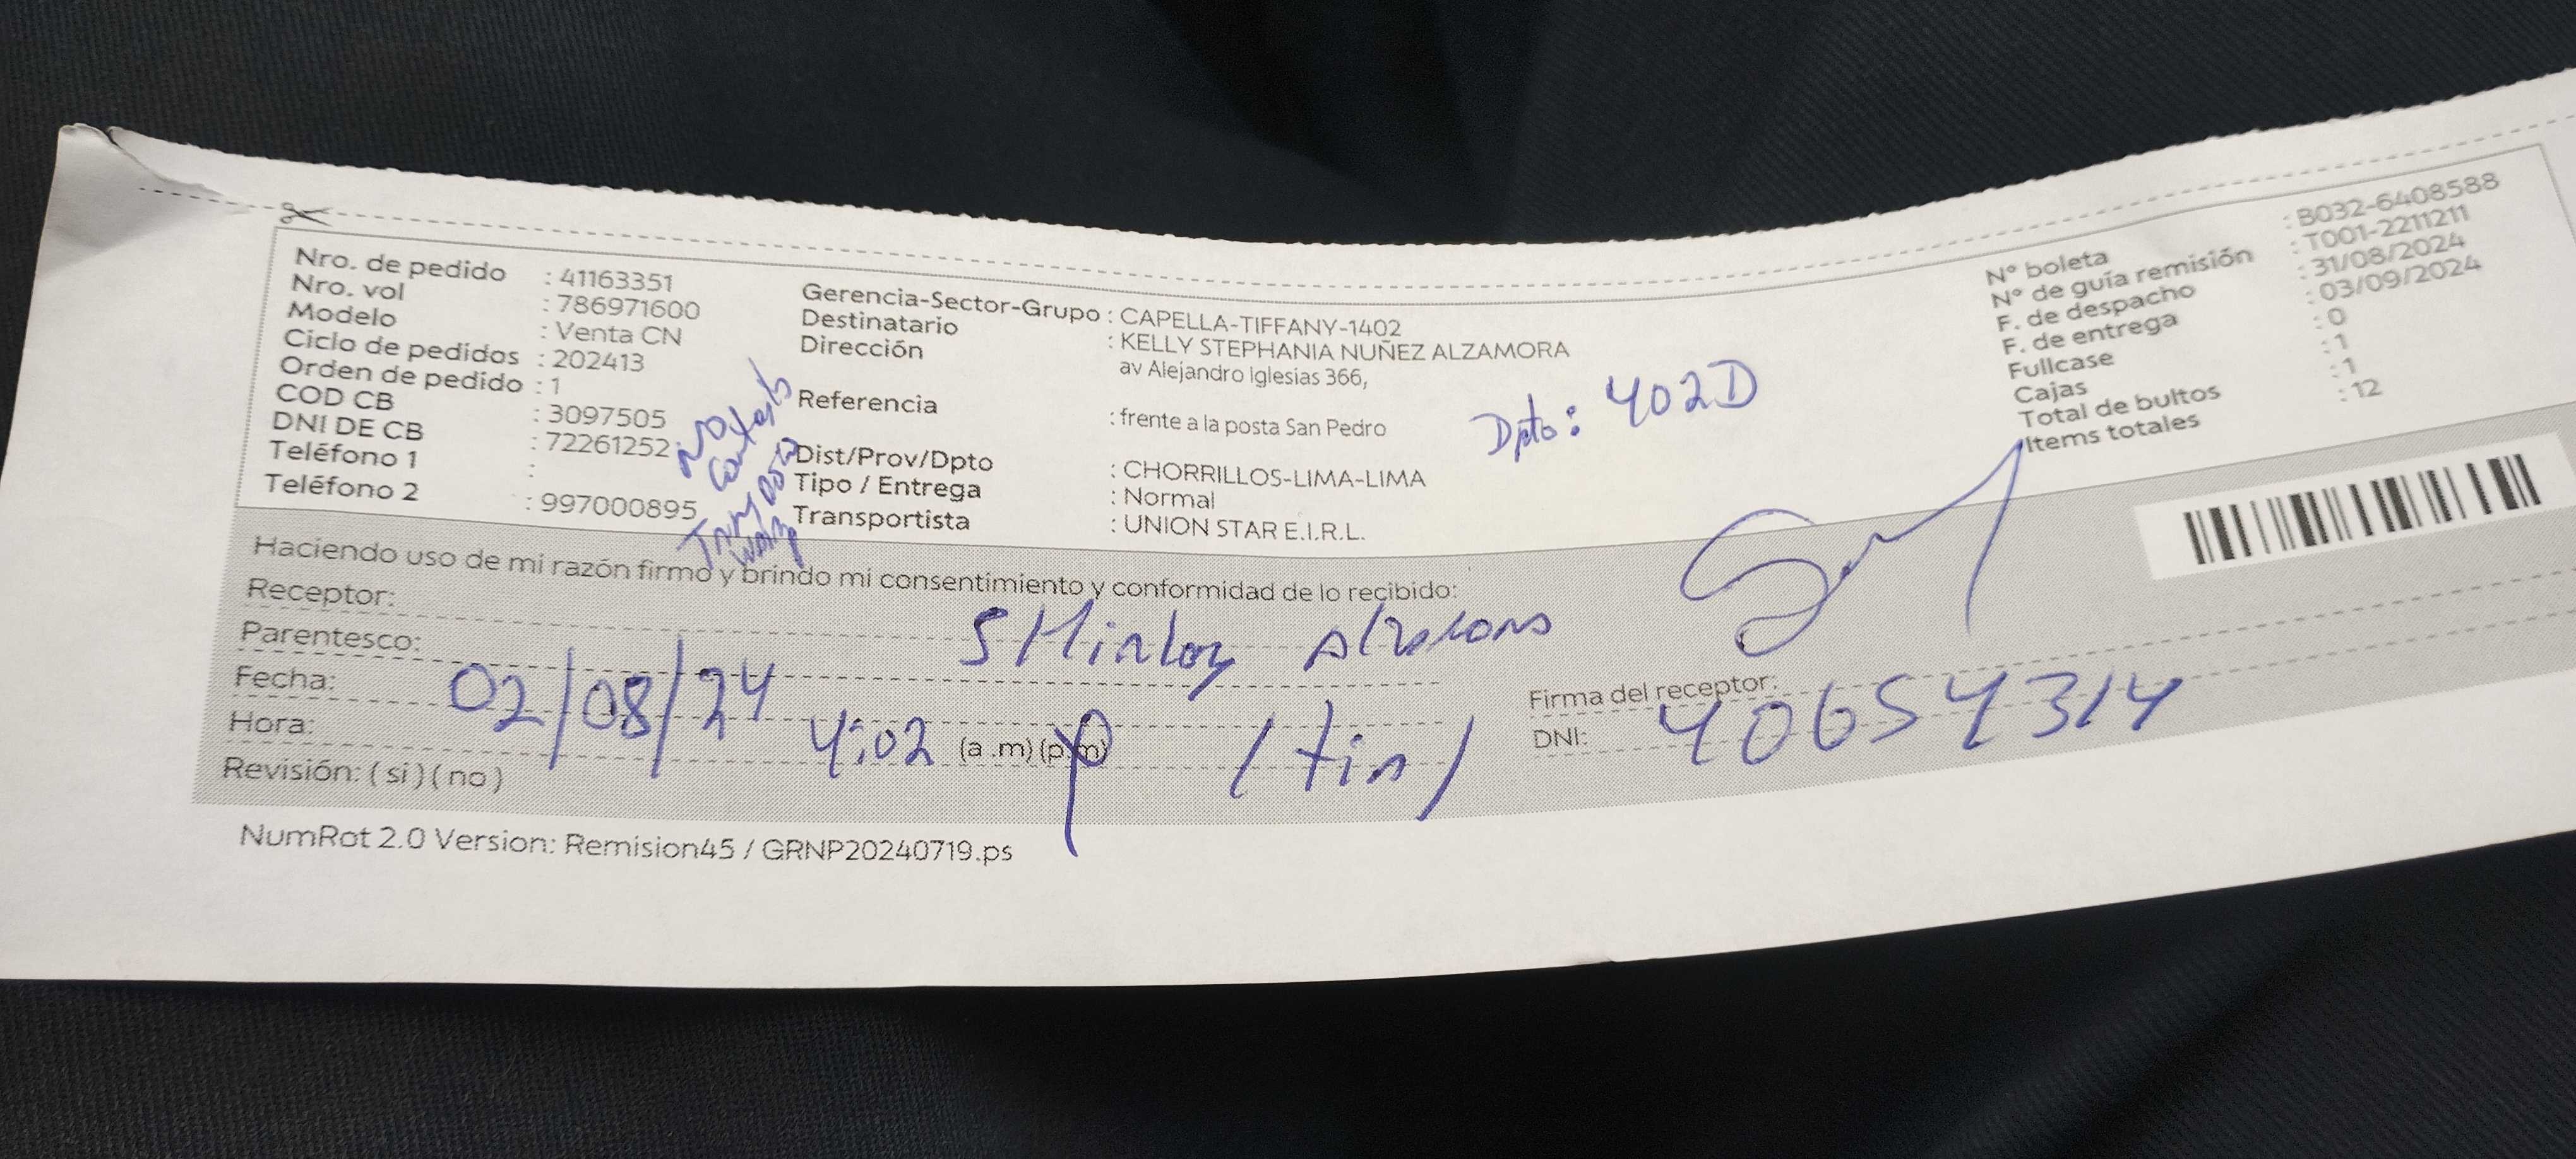 Nro. de pedido : 41163351
Nro. vol : 786971600
Modelo : Venta CN
Ciclo de pedidos : 202413
Orden de pedido : 1
COD CB : 3097505
DNI DE CB : 72261252
Teléfono 1 :
Teléfono 2 : 997000895
No
Gerencia-Sector-Grupo : CAPELLA-TIFFANY-1402
Destinatario : KELLY STEPHANIA NUÑEZ ALZAMORA
Dirección av Alejandro Iglesias 366,
Referencia : frente a la posta San Pedro
Dpto: 402D
Dist/Prov/Dpto : CHORRILLOS-LIMA-LIMA
Tipo / Entrega : Normal
Transportista : UNION STAR E.I.R.L.
N° boleta : B032-6408588
N° de guía remisión : T001-2211211
F. de despacho : 31/08/2024
F. de entrega : 03/09/2024
Fullcase : 0
Cajas : 1
Total de bultos : 1
Items totales : 12
Haciendo uso de mi razón firmo y brindo mi consentimiento y conformidad de lo recibido:
Receptor:
Parentesco:
Fecha: 02/08/24
Hora: 4:02 (a .m) (p.m) (tia)
Revisión: ( si ) ( no )
Firma del receptor:
DNI: 40654314
NumRot 2.0 Version: Remision45 / GRNP20240719.ps